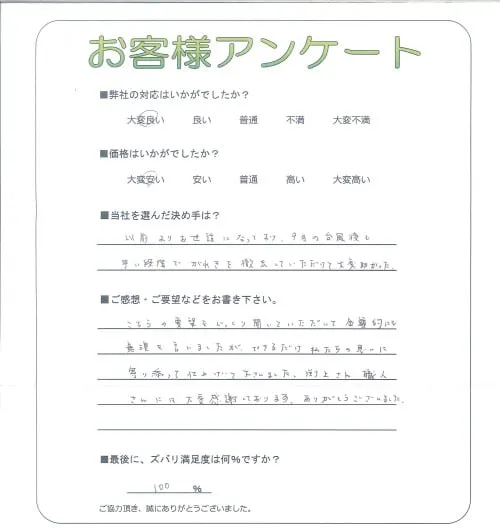 お客様アンケート
■弊社の対応はいかがでしたか？
大変良い 良い 普通 不満 大変不満
■価格はいかがでしたか？
大変安い 安い 普通 高い 大変高い
■当社を選んだ決め手は？
以前よりお世話になっており、9月の台風後も
早い段階でがれきを撤去していただけて大変助かった。
■ご感想・ご要望などをお書き下さい。
こちらの要望をじっくり聞いていただいて金額的にも
無理を言いましたが、できるだけ私たちの思いに
寄り添って仕上げて下さいました。渕上さん 職人
さんには大変感謝しております。ありがとうございました。
■最後に、ズバリ満足度は何％ですか？
100 ％
ご協力頂き、誠にありがとうございました。